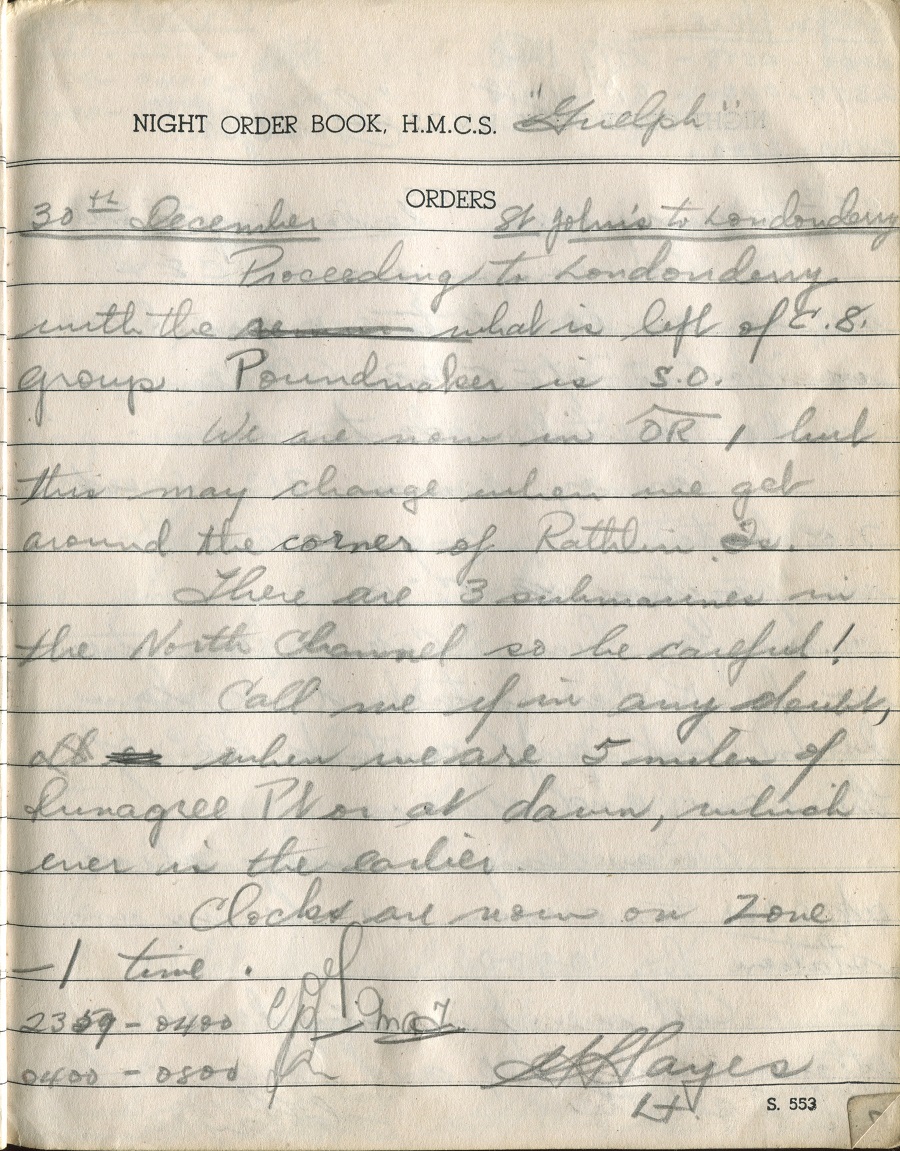 NIGHT ORDER BOOK, H.M.C.S. "Guelph"
ORDERS
30th December St John's to Londonderry
Proceeding to Londonderry
with the what is left of C.8.
group. Poundmaker is S.O.
We are now in OR, but
this may change when we get
around the corner of Rathlin Is.
There are 3 submarines in
the North Channel so be careful!
Call me if in any doubt,
when we are 5 miles of
Runagree Pt or at dawn, which
ever is the earlier.
Clocks are now on Zone
-1 time.
2359 - 0400
0400 - 0800 Hayes
Lt.
S. 553